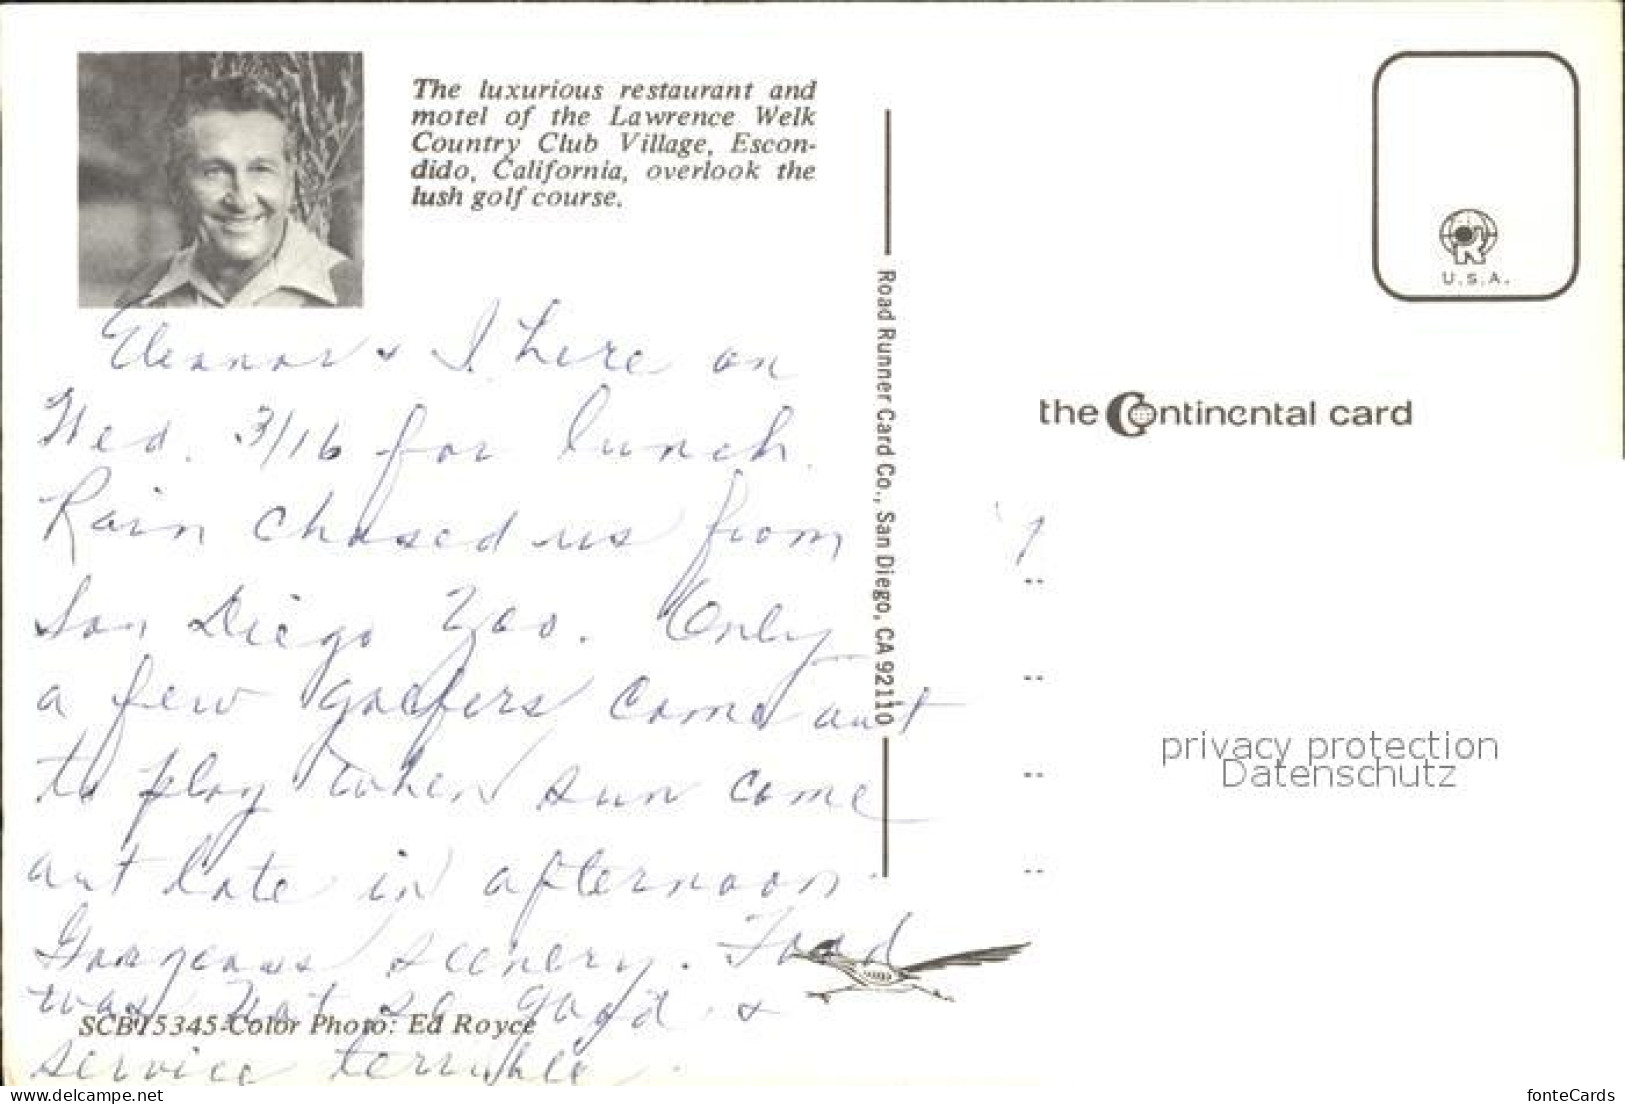 The luxurious restaurant and
motel of the Lawrence Welk
Country Club Village, Escon-
dido, California, overlook the
lush golf course.
Eleanor & I here on
Wed. 3/16 for lunch.
Rain chased us from
San Diego Zoo. Only
a few golfers came out
to play when sun came
out late in afternoon.
Gorgeous scenery. Food
was not so good &
service terrible.
SCB15345-Color Photo: Ed Royce
Road Runner Card Co., San Diego, CA 92110
R
U.S.A.
the Continental card
privacy protection
Datenschutz
www.delcampe.net
fonteCards